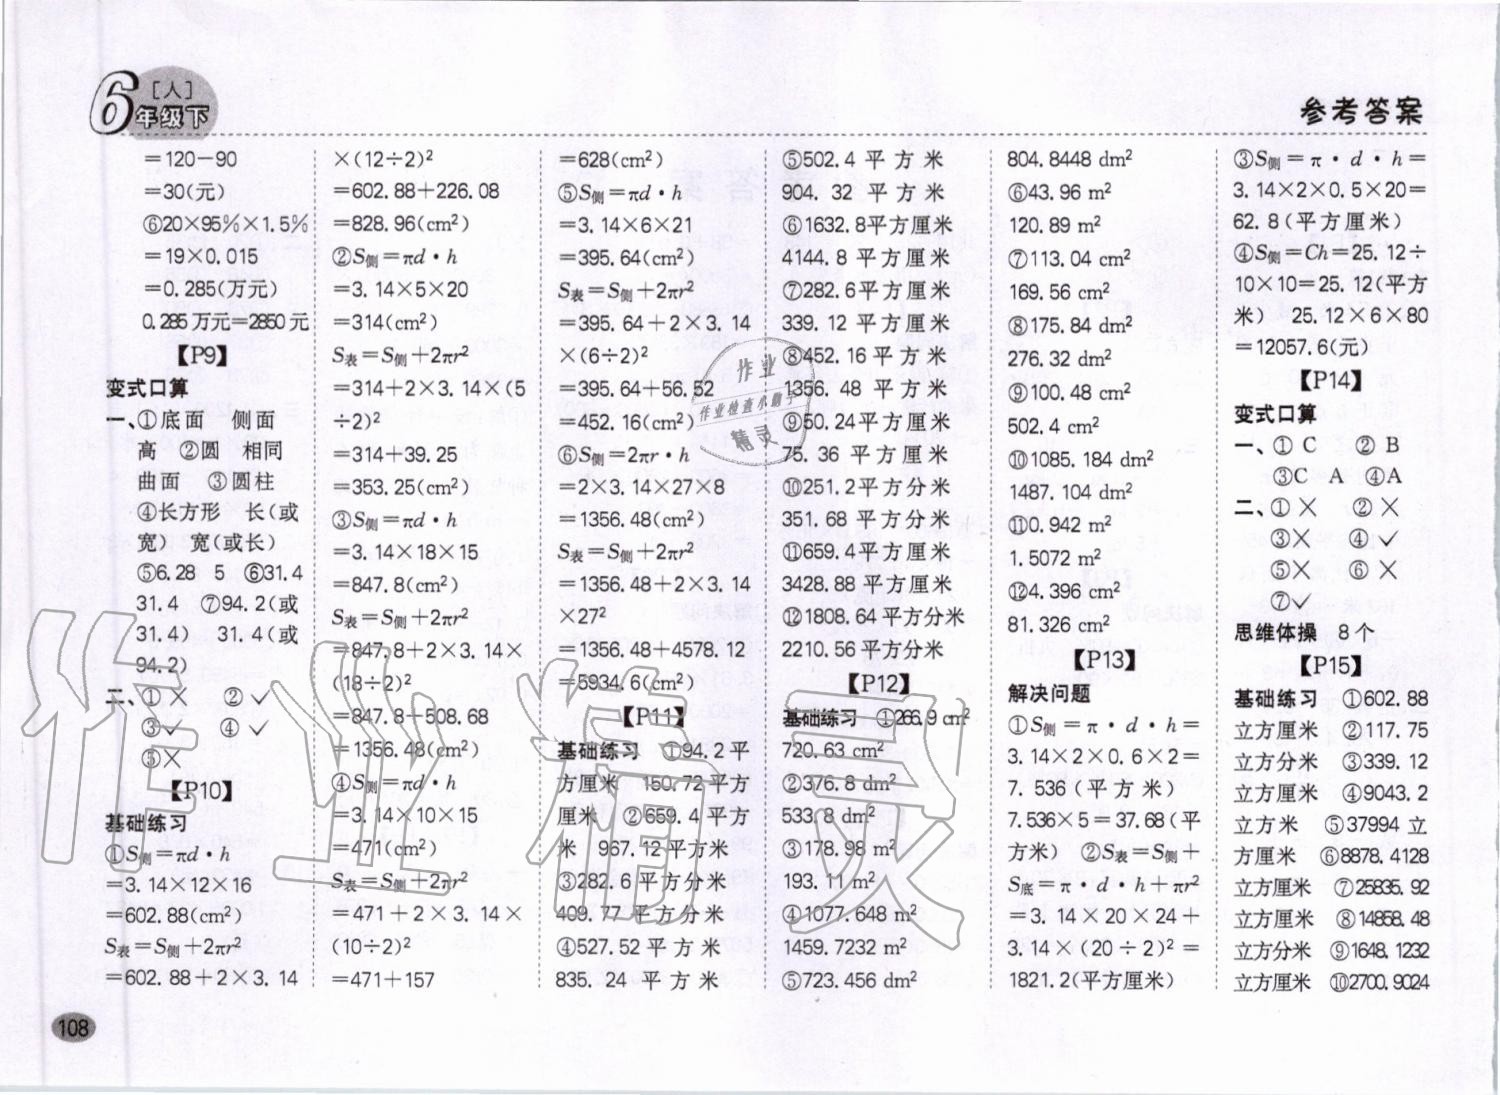 6年级下 [人]
参考答案
=120-90
=30(元)
⑥20×95%×1.5%
=19×0.015
=0.285(万元)
0.285万元=2850元
【P9】
变式口算
一、①底面 侧面
高 ②圆 相同
曲面 ③圆柱
④长方形 长(或
宽) 宽(或长)
⑤6.28 5 ⑥31.4
31.4 ⑦94.2(或
31.4) 31.4(或
94.2)
二、①× ②✓
③✓ ④✓
⑤×
【P10】
基础练习
①S侧=πd·h
=3.14×12×16
=602.88(cm²)
S表=S侧+2πr²
=602.88+2×3.14
×(12÷2)²
=602.88+226.08
=828.96(cm²)
②S侧=πd·h
=3.14×5×20
=314(cm²)
S表=S侧+2πr²
=314+2×3.14×(5
÷2)²
=314+39.25
=353.25(cm²)
③S侧=πd·h
=3.14×18×15
=847.8(cm²)
S表=S侧+2πr²
=847.8+2×3.14×
(18÷2)²
=847.8+508.68
=1356.48(cm²)
④S侧=πd·h
=3.14×10×15
=471(cm²)
S表=S侧+2πr²
=471+2×3.14×
(10÷2)²
=471+157
=628(cm²)
⑤S侧=πd·h
=3.14×6×21
=395.64(cm²)
S表=S侧+2πr²
=395.64+2×3.14
×(6÷2)²
=395.64+56.52
=452.16(cm²)
⑥S侧=2πr·h
=2×3.14×27×8
=1356.48(cm²)
S表=S侧+2πr²
=1356.48+2×3.14
×27²
=1356.48+4578.12
=5934.6(cm²)
【P11】
基础练习 ①94.2平
方厘米 150.72平方
厘米 ②659.4平方
米 967.12平方米
③282.6平方分米
409.77平方分米
④527.52平方米
835.24平方米
⑤502.4平方米
904.32平方米
⑥1632.8平方厘米
4144.8平方厘米
⑦282.6平方厘米
339.12平方厘米
⑧452.16平方米
1356.48平方米
⑨50.24平方厘米
75.36平方厘米
⑩251.2平方分米
351.68平方分米
⑪659.4平方厘米
3428.88平方厘米
⑫1808.64平方分米
2210.56平方分米
【P12】
基础练习 ①266.9 cm²
720.63 cm²
②376.8 dm²
533.8 dm²
③178.98 m²
193.11 m²
④1077.648 m²
1459.7232 m²
⑤723.456 dm²
804.8448 dm²
⑥43.96 m²
120.89 m²
⑦113.04 cm²
169.56 cm²
⑧175.84 dm²
276.32 dm²
⑨100.48 cm²
502.4 cm²
⑩1085.184 dm²
1487.104 dm²
⑪0.942 m²
1.5072 m²
⑫4.396 cm²
81.326 cm²
【P13】
解决问题
①S侧=π·d·h=
3.14×2×0.6×2=
7.536(平方米)
7.536×5=37.68(平
方米) ②S表=S侧+
S底=π·d·h+πr²
=3.14×20×24+
3.14×(20÷2)²=
1821.2(平方厘米)
③S侧=π·d·h=
3.14×2×0.5×20=
62.8(平方厘米)
④S侧=Ch=25.12÷
10×10=25.12(平方
米) 25.12×6×80
=12057.6(元)
【P14】
变式口算
一、①C ②B
③C A ④A
二、①× ②×
③× ④✓
⑤× ⑥×
⑦✓
思维体操 8个
【P15】
基础练习 ①602.88
立方厘米 ②117.75
立方分米 ③339.12
立方厘米 ④9043.2
立方米 ⑤37994立
方厘米 ⑥8878.4128
立方厘米 ⑦25835.92
立方厘米 ⑧14858.48
立方分米 ⑨1648.1232
立方厘米 ⑩2700.9024
108
作业
作业检查小助手
精灵
作业精灵